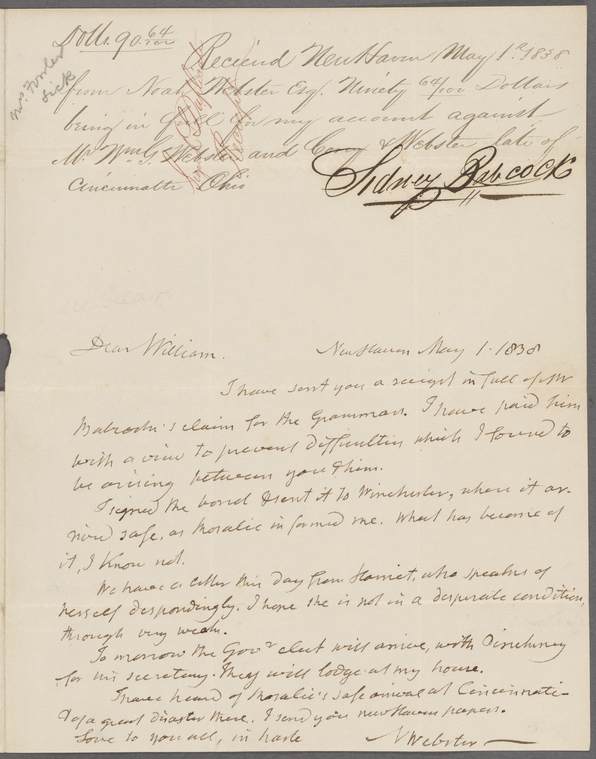 Dolls. 90.64/100
Mrs Fowler
sick
Recieved New Haven May 1st 1838
from Noah Webster Esq. Ninety 64/100 Dollars
being in full for my account against
Mr Wm G. Webster and Corey & Webster late of
Cincinnatti Ohio
Sidney Babcock
Dear William. New Haven May 1. 1838
I have sent you a receipt in full of Mr
Babcock's claim for the Grammars. I have paid him
with a view to prevent difficulties which I found to
be arising between you & him.
I signed the bond & sent it to Winchester, where it ar-
rived safe, as Rosalie informed me. What has become of
it, I know not.
We have a letter this day from Harriet, who speaks of
herself despondingly. I hope she is not in a desperate condition,
through very weak.
To morrow the Govr elect will arrive, with Pinckney
for his secretary. They will lodge at my house.
I have heard of Rosalie's safe arrival at Cincinnati -
& of a great disaster there. I send you New Haven papers.
Love to you all, in haste N Webster